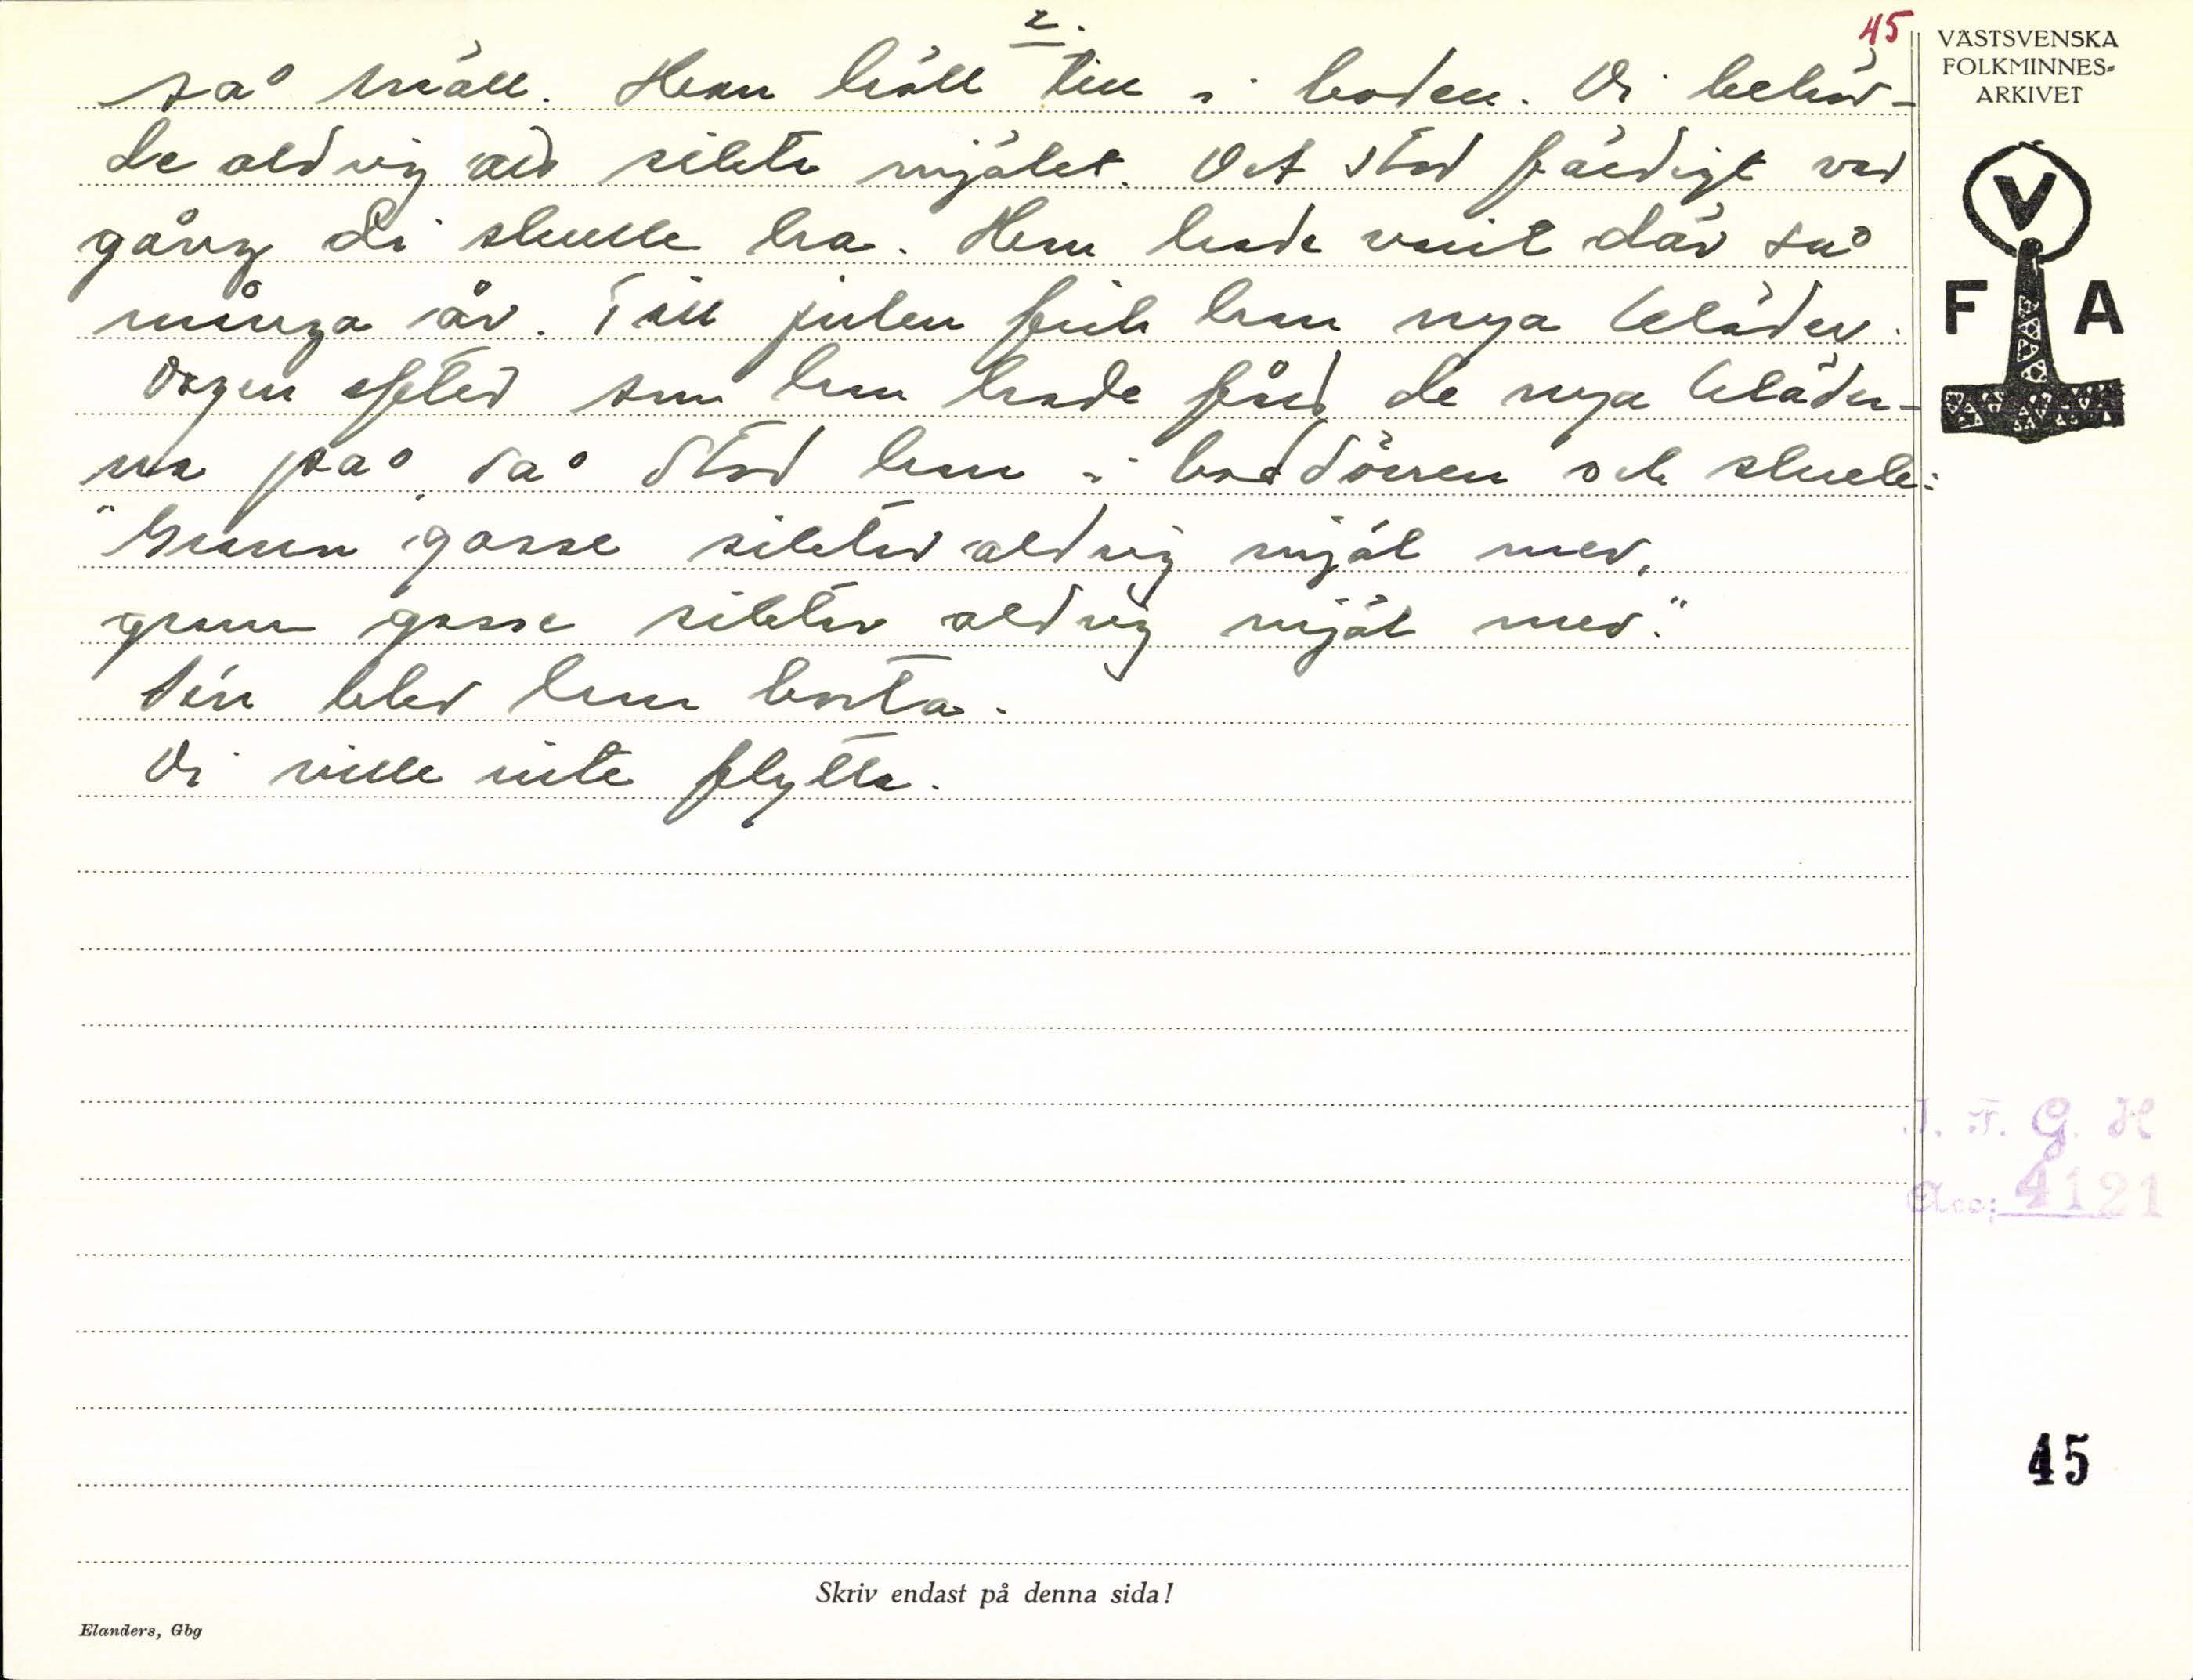 2.
45
så snäll. Han höll till i boden. Di behöv-
de aldrig äld sikta mjölet. Det stod färdigt var
gång di skulle ha. Han hade varit där så
många år. Till julen fick han nya kläder.
Dagen efter som han hade fått de nya kläder-
na på, så stod han i boddörren och skrek:
"Grann gosse siktar aldrig mjöl mer,
grann gosse siktar aldrig mjöl mer."
Sen blev han borta.
Di ville inte flytta.
VÄSTSVENSKA
FOLKMINNES-
ARKIVET
V
F A
I. F. G. H
Acc: 4121
45
Skriv endast på denna sida!
Elanders, Gbg